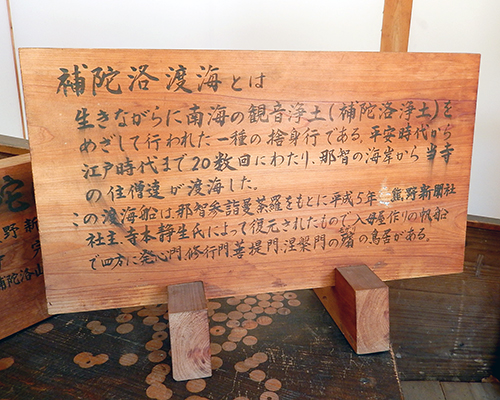 補陀洛渡海とは
生きながらに南海の観音浄土(補陀洛浄土)を
めざして行われた一種の捨身行である。平安時代から
江戸時代まで20数回にわたり、那智の海岸から当寺
の住僧達が渡海した。
この渡海船は那智参詣曼荼羅をもとに平成5年 熊野新聞社
社主、寺本静生氏によって復元されたもので入母屋作りの帆船
で四方に発心門、修行門菩提門涅槃門の 鳥居がある。
陀
野新
補陀洛山